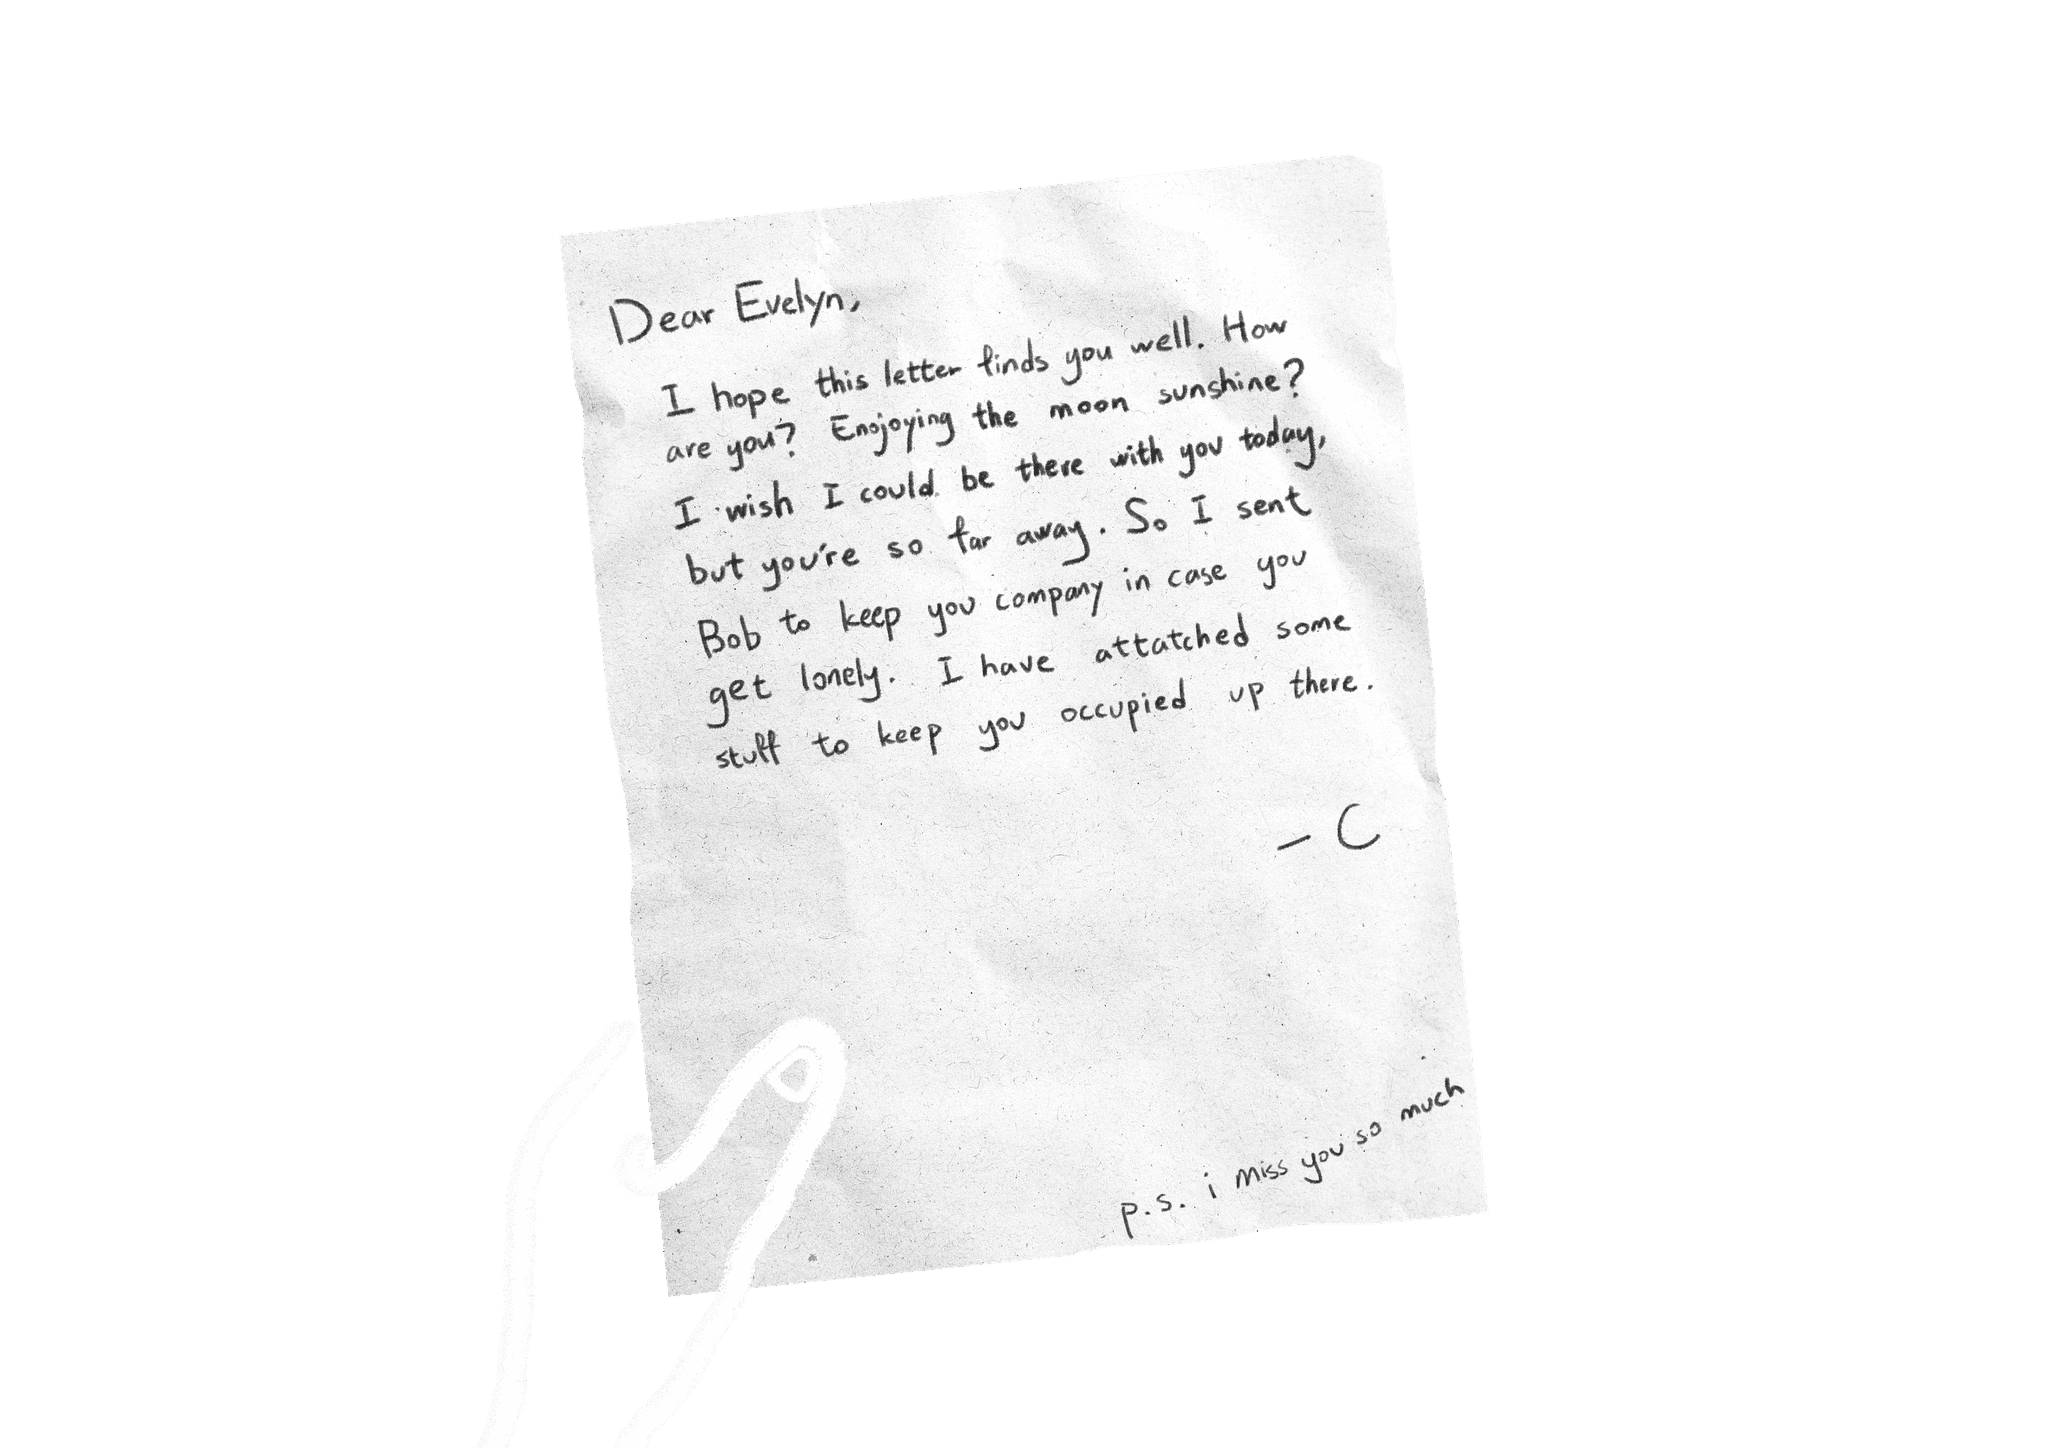 Dear Evelyn,
I hope this letter finds you well. How
are you? Enojoying the moon sunshine?
I wish I could be there with you today,
but you're so far away. So I sent
Bob to keep you company in case you
get lonely. I have attatched some
stuff to keep you occupied up there.
– C
p.s. i miss you so much